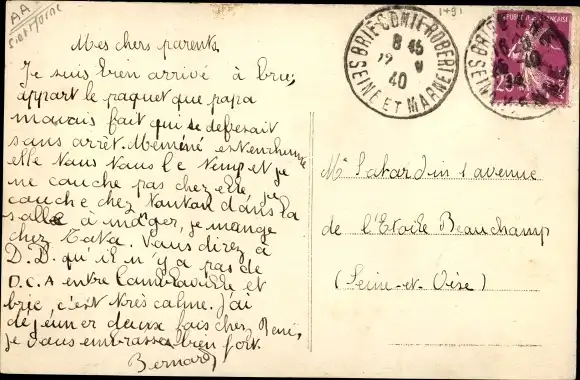 AA
1491
Mes chers parents.
Je suis bien arrivé à brie,
appart le paquet que papa
mavais fait qui se deferait
sans arrêt. Meméné est enrhumée
elle tous tous le temp et je
ne couche pas chez elle je
couche chez Tonton dans la
salle à manger, je mange
chez Tata. Vous direz à
D.D. qu'il n'y a pas de
D.C.A entre et
brie, c'est très calme. J'ai
déjeuner deux fois chez René,
je vous embrasse bien fort.
Bernard
BRIE-COMTE-ROBERT
8 45
40
SEINE ET MARNE
Mr 1 avenue
de l'Etoile Beauchamp
(Seine-et-Oise)